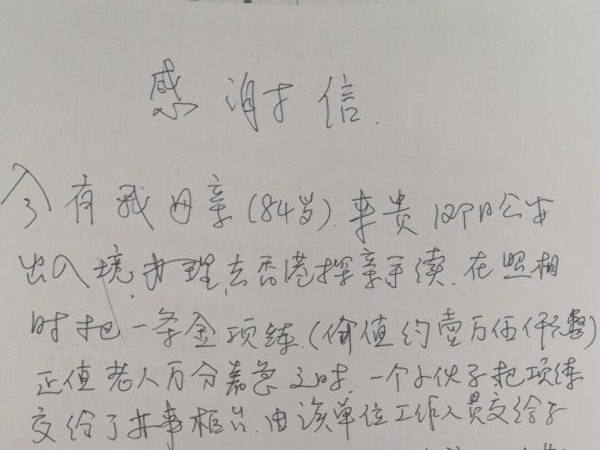 感谢信.
今有我母亲(84岁).来贵部门公安
出入境,办理去香港探亲手续.在照相
时把一条金项练.(价值约壹万伍仟元整)
正值老人万分着急之时.一个小伙子把项练
交给了办事柜台.由该单位工作人员交给了